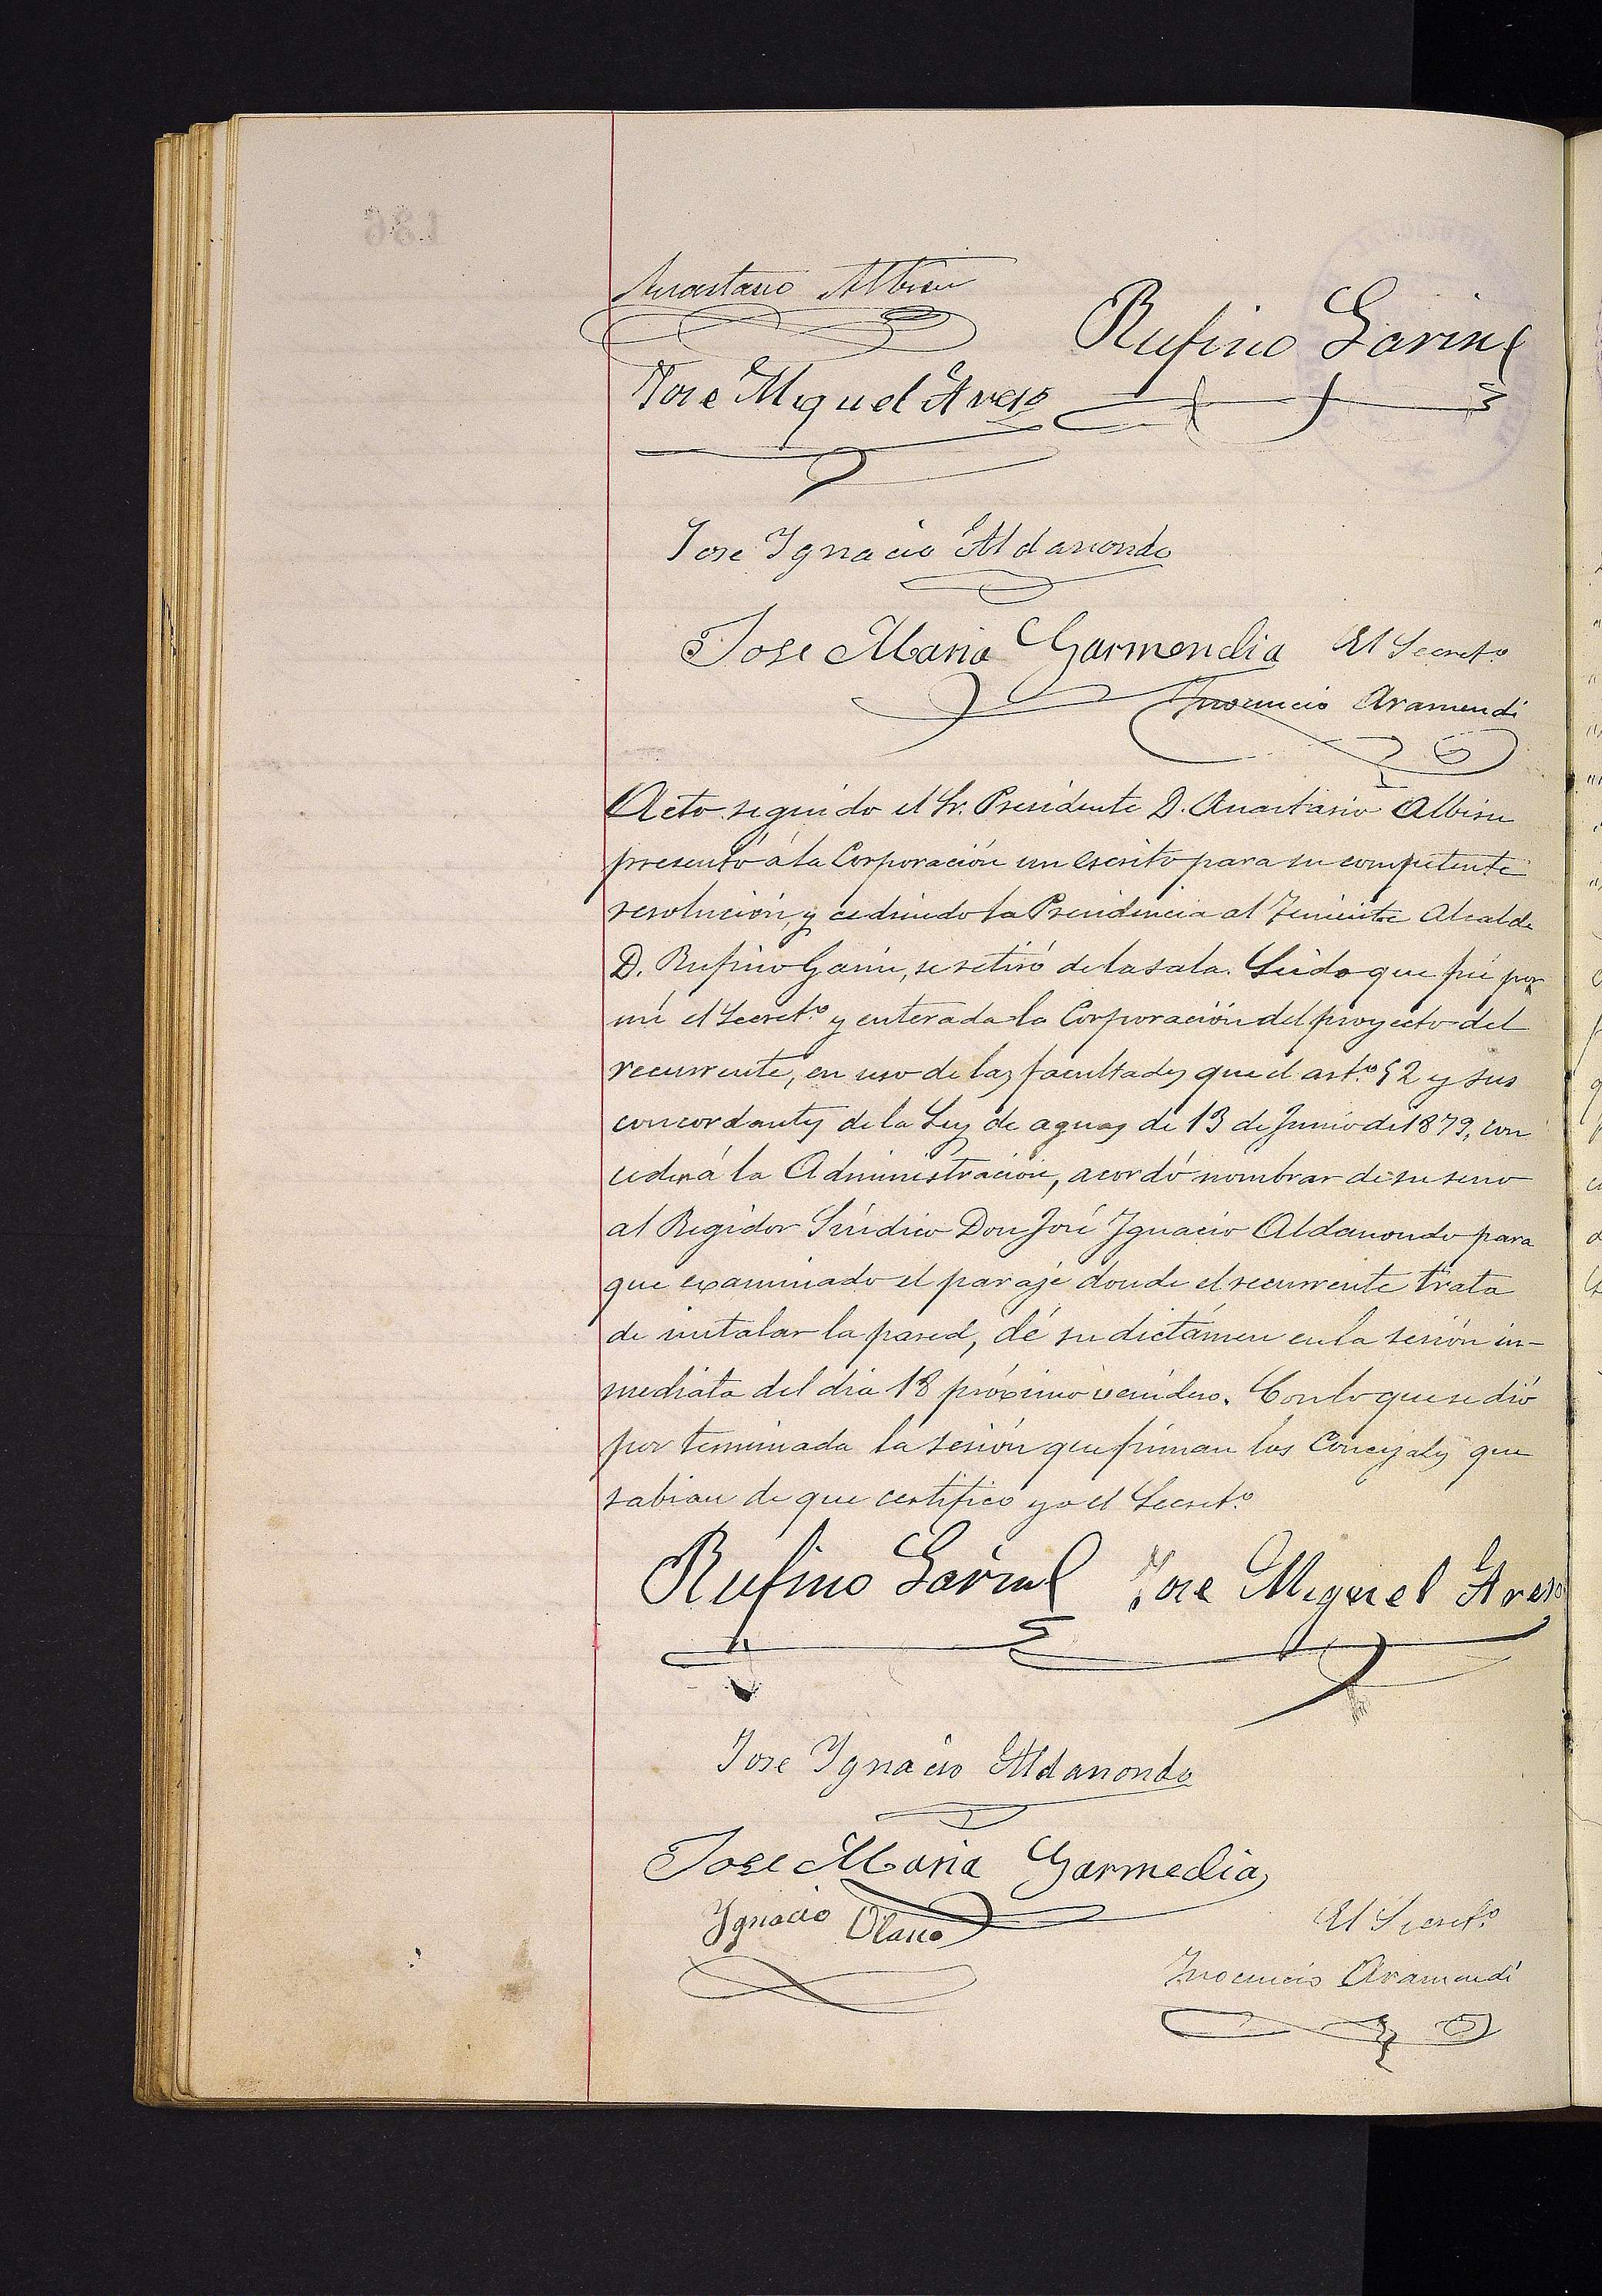 Anastasio Albisu
Rufino Garin
Jose Miguel Areso
Jose Ygnacio Aldanondo
Jose Maria Garmendia
El Secret.º
Ynocencio Aramendi
Acto seguido el Sr. Presidente D. Anastasio Albisu
presentó á la Corporación un escrito para su competente
resolución, y cediendo la Presidencia al Teniente Alcalde
D. Rufino Garin, se retiró de la sala. Leido que fué por
mi el Secret.º y enterada la Corporación del proyecto del
recurrente, en uso de las facultades que el art.º 52 y sus
concordantes de la Ley de aguas de 13 de Junio de 1879, con
cede á la Administración, acordó nombrar de su seno
al Regidor Síndico Don José Ygnacio Aldanondo para
que examinado el paraje donde el recurrente trata
de instalar la pared, dé su dictámen en la sesión in-
mediata del dia 18 próximo venidero. Con lo que se dió
por terminada la sesión que firman los Concejales que
sabian de que certifico yo el Secret.º
Rufino Garin
Jose Miguel Areso
Jose Ygnacio Aldanondo
Jose Maria Garmedia
Ygnacio Olano
El Secret.º
Ynocencio Aramendi